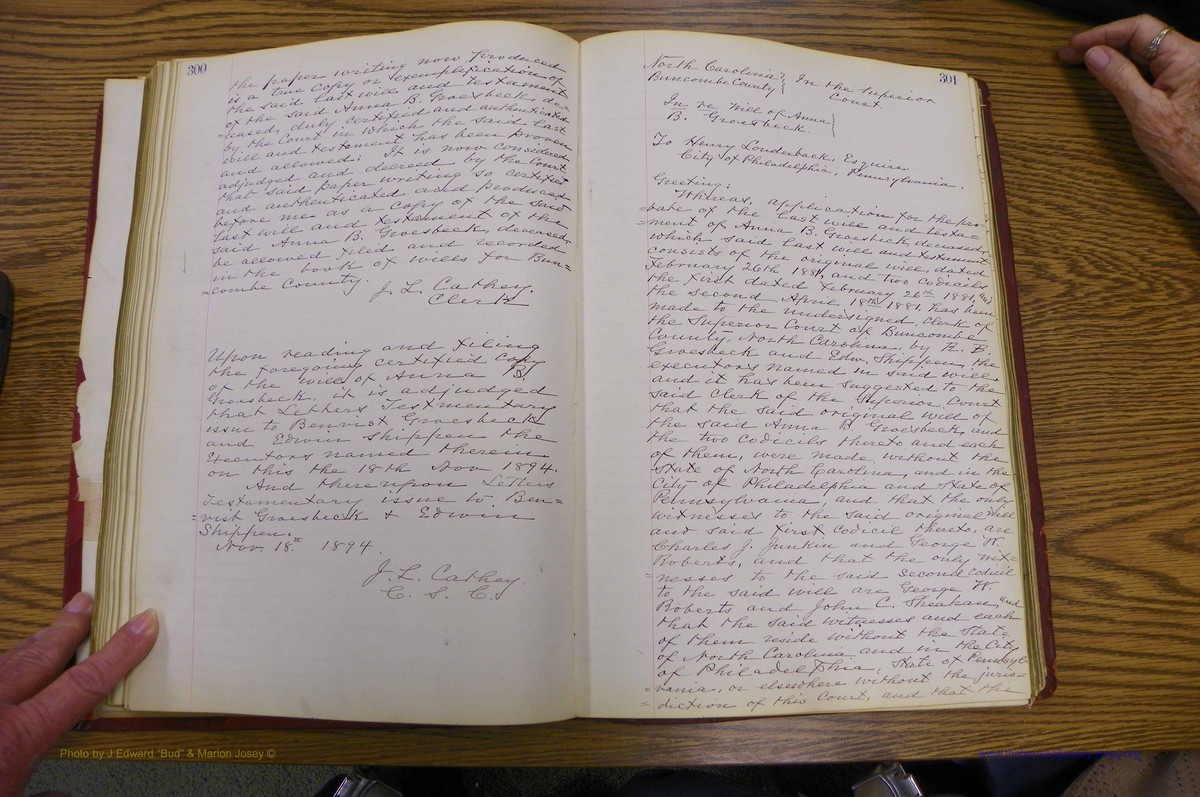 300
the paper writing now produced
is a true copy or exemplification of
the said last will and testament
of the said Anna B. Groesbeck de-
=ceased, duly certified and authenticated
by the Court in which the said last
will and testament has been proven
and allowed: It is now considered
adjudged and decreed by the Court
that said paper writing so certified
and authenticated and produced
before me as a copy of the said
last will and testament of the
said Anna B. Groesbeck, deceased
be allowed filed and recorded
in the book of wills for Bun=
=combe County.
J. L. Cathey.
Clerk
Upon reading and filing
the foregoing certified copy
of the will of Anna B.
Groesbeck, it is adjudged
that Letters Testmentary
issue to Benvist Groesbeck
and Edwin Shippen the
Executors named therein
on this the 18th Nov 1894.
And thereupon Letters
Testamentary issue to Ben=
=vist Groesbeck & Edwin
Shippen.
Nov. 18th 1894.
J. L. Cathey.
C. S. C.
301
North Carolina } In the Superior
Buncombe County } Court.
In re Will of Anna }
B. Groesbeck. }
To Henry Louderback, Esquire.
City of Philadelphia, Pennsylvania.
Greeting:
Whereas, application for the pro=
=bate of the last will and testa=
=ment of Anna B. Groesbeck, deceased,
which said last will and testament
consists of the original will, dated
February 26th 1881, and two codicils
the first dated February 26th 1881, and
the second April 18th 1881, has been
made to the undersigned, Clerk of
the Superior Court of Buncombe
County, North Carolina, by R. B.
Groesbeck and Edw. Shippen, the
executors named in said will,
and it has been suggested to the
said Clerk of the Superior Court
that the said original will of
the said Anna B Groesbeck, and
the two codicils thereto and each
of them, were made without the
State of North Carolina, and in the
City of Philadelphia and State of
Pennsylvania, and that the only
witnesses to the said original will
and said first codicil thereto, are
Charles J. Junkin and George W.
Roberts, and that the only wit=
=nesses to the said second codicil
to the said will are George W.
Roberts and John C. Sheahan, and
that the said witnesses and each
of them reside without the State
of North Carolina, and in the City
of Philadelphia, State of Pennsyl=
=vania, or elsewhere without the juris=
=diction of this Court, and that the
Photo by J Edward "Bud" & Marion Josey ©